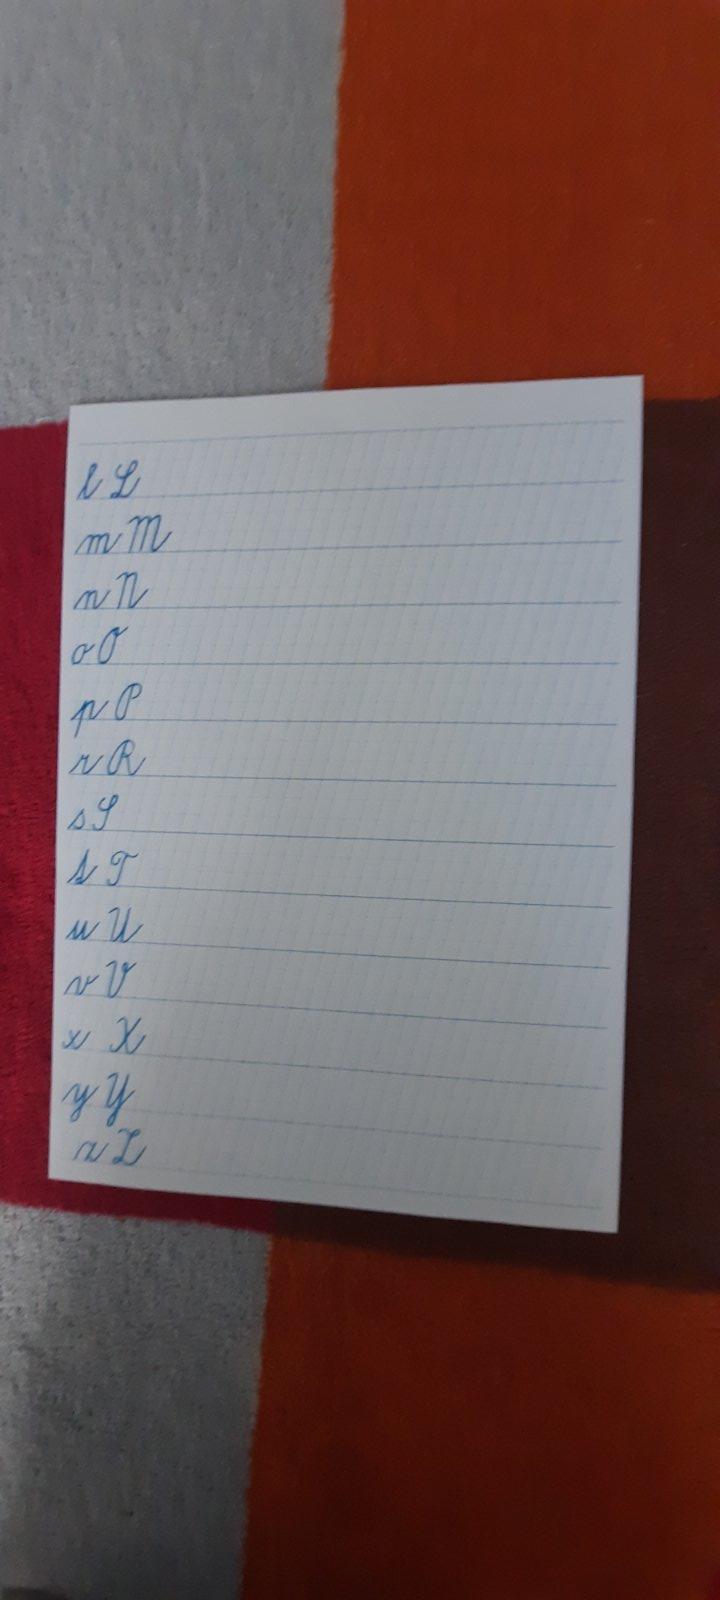 l L
m M
n N
o O
p P
r R
s S
t T
u U
v V
x X
y Y
z Z